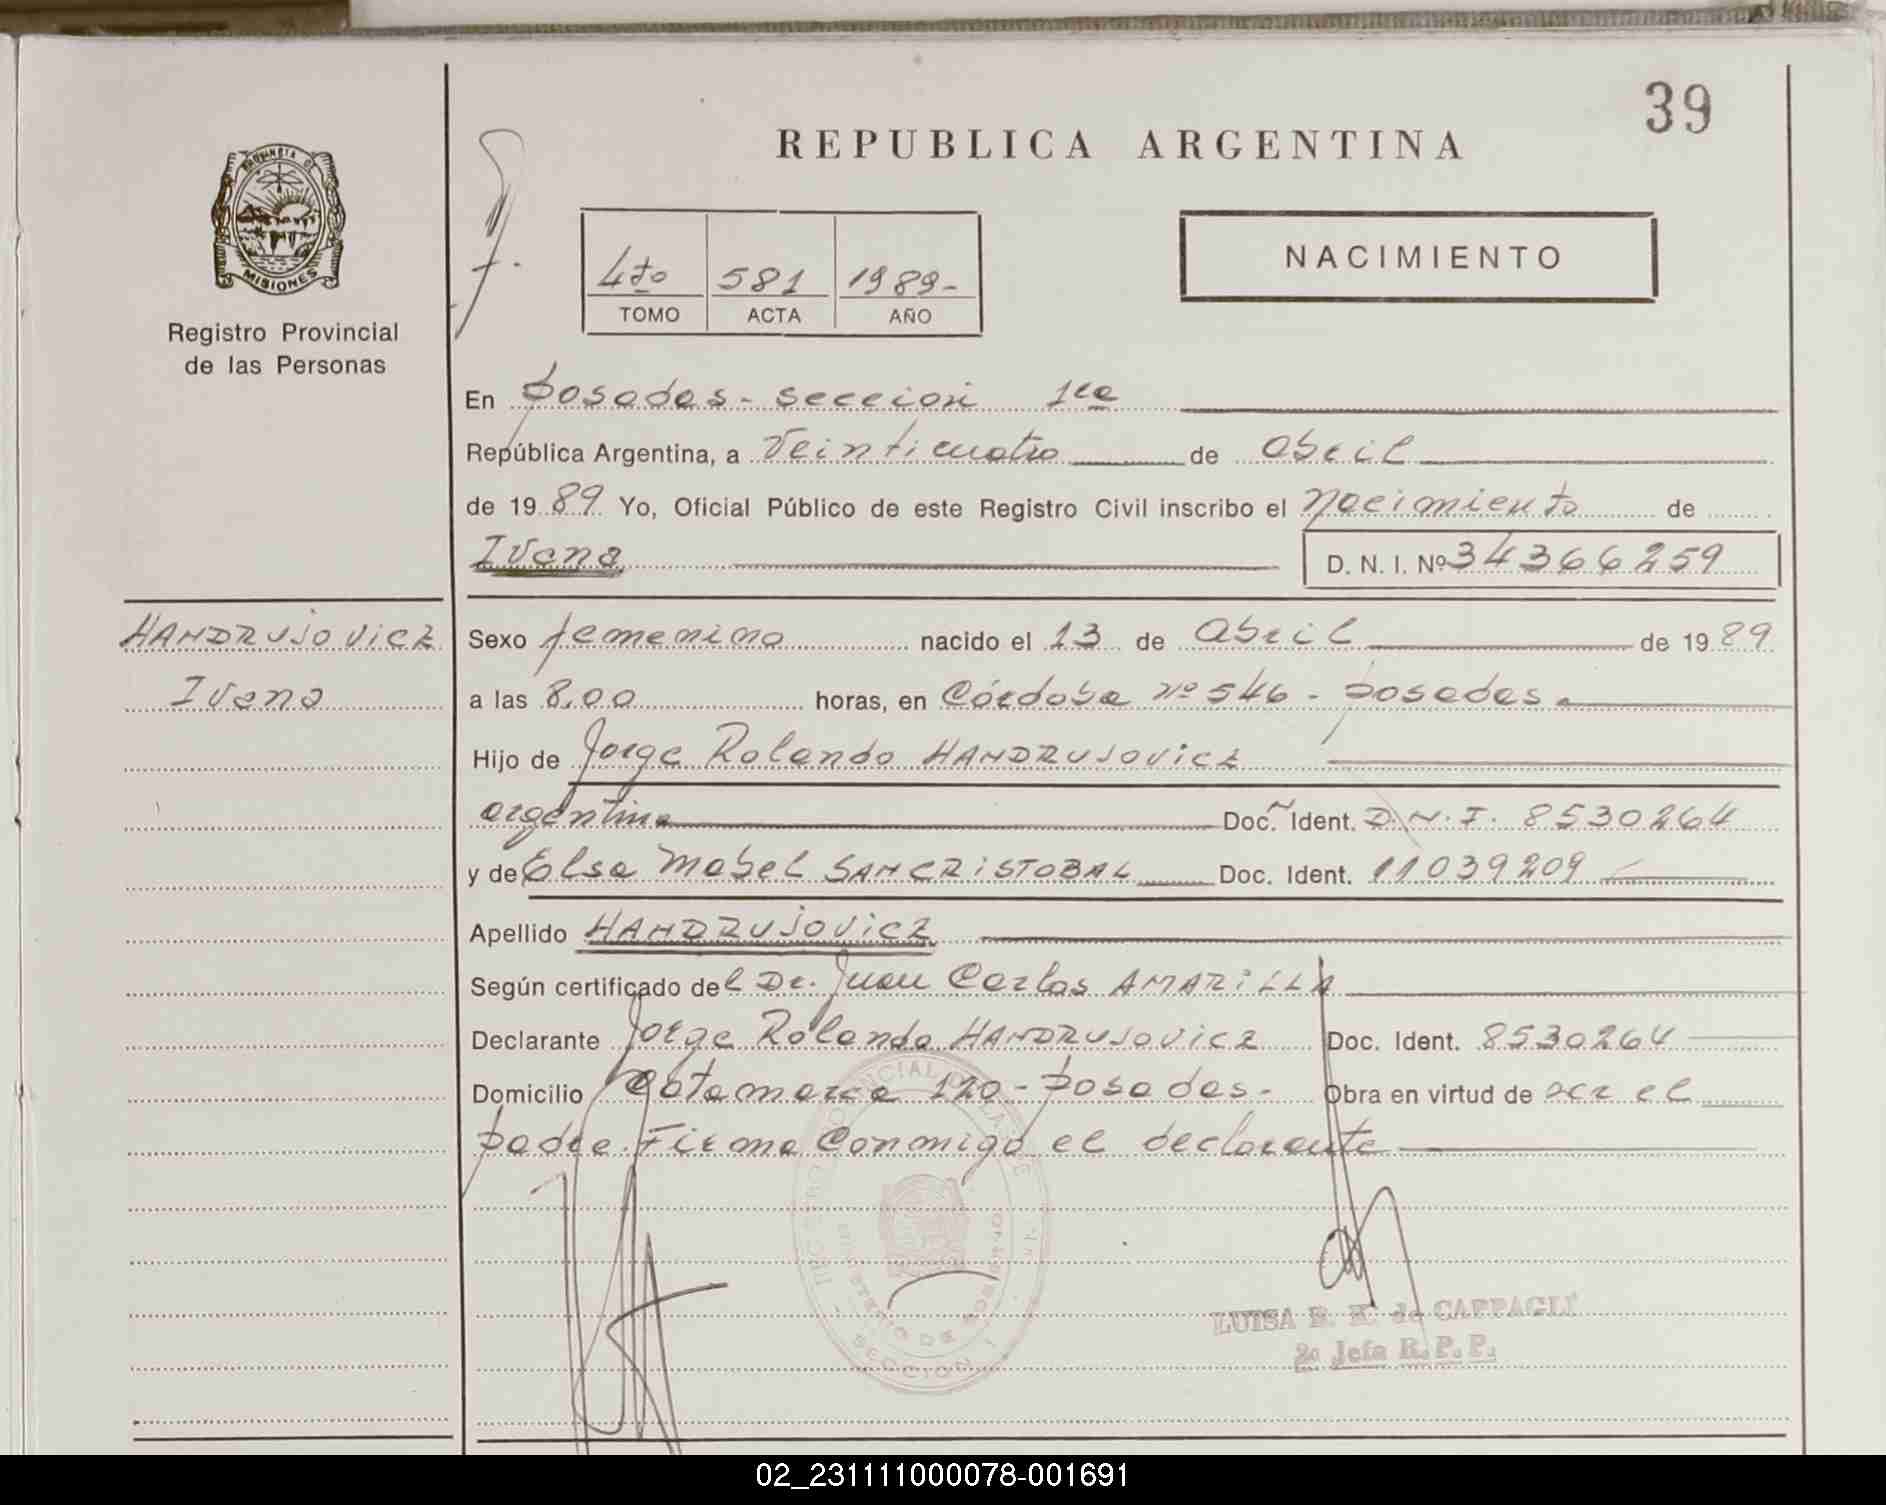 39
REPUBLICA ARGENTINA
PROVINCIA DE
MISIONES
Registro Provincial
de las Personas
4to 581 1989-
TOMO ACTA AÑO
NACIMIENTO
En Posadas - sección 1ra
República Argentina, a Veinticuatro de abril
de 1989 Yo, Oficial Público de este Registro Civil inscribo el nacimiento de
Ivana D. N. I. Nº 34366259
HANDRUJOVICZ
Ivana
Sexo femenino nacido el 13 de abril de 1989
a las 8,00 horas, en Córdoba nº 546 - Posadas
Hijo de Jorge Rolando HANDRUJOVICZ
argentina Doc. Ident. D.N.I. 8530264
y de Elsa Mabel SANCRISTOBAL Doc. Ident. 11039209
Apellido HANDRUJOVICZ
Según certificado del Dr. Juan Carlos AMARILLA
Declarante Jorge Rolando HANDRUJOVICZ Doc. Ident. 8530264
Domicilio Catamarca 120 - Posadas - Obra en virtud de ser el
padre. Firma conmigo el declarante
SECCION 1
LUISA R. K. de CAPPAGLI
2ª Jefa R.P.P.
02_231111000078-001691